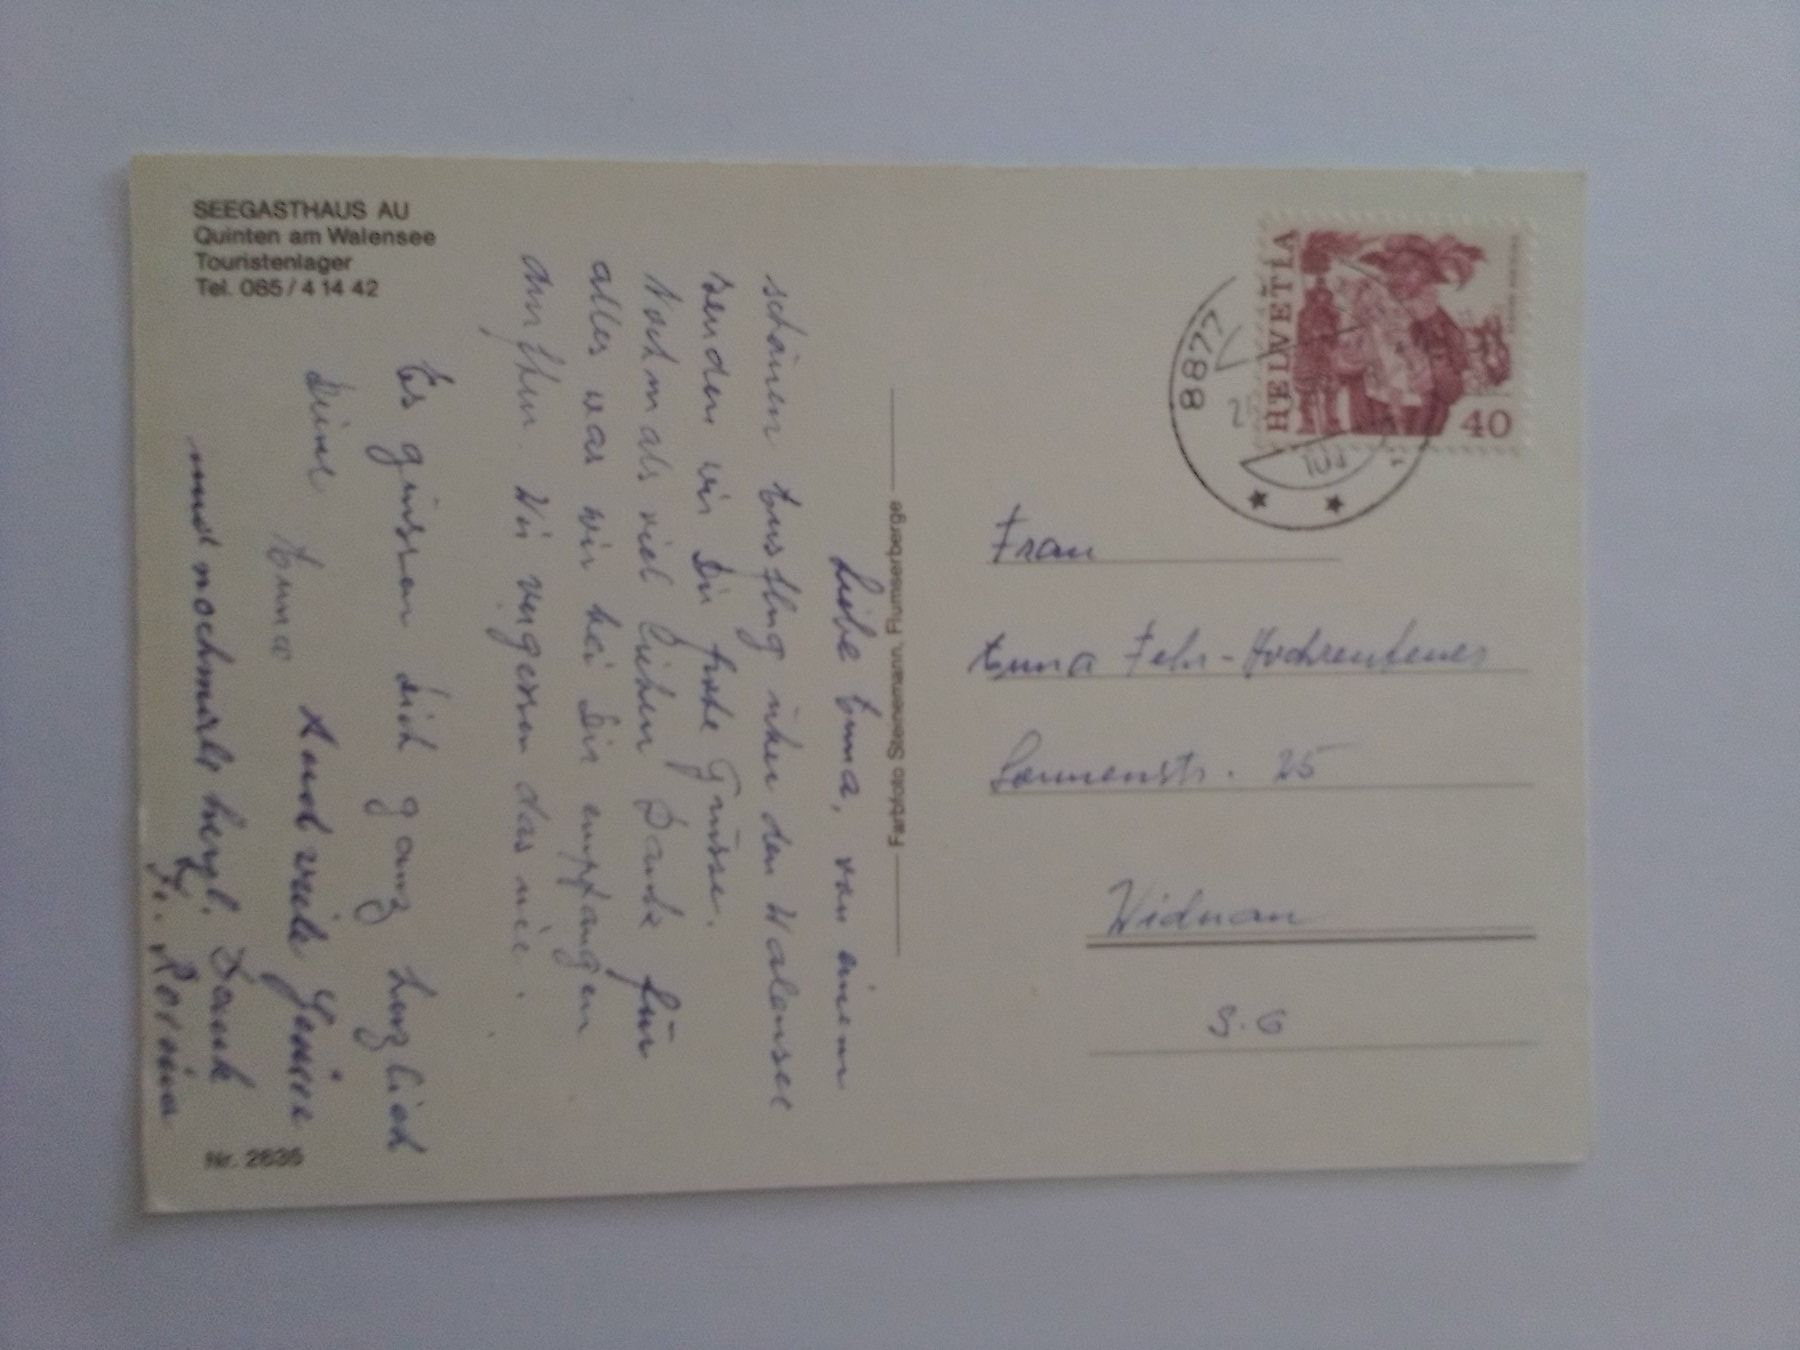 SEEGASTHAUS AU
Quinten am Walensee
Touristenlager
Tel. 085/4 14 42
Liebe Emma, von einem
schönen Ausflug über den Walensee
senden wir Dir frohe Grüsse.
Nochmals viel lieben Dank für
alles was wir bei Dir empfangen
durften. Wir vergessen das nie.
Es grüssen dich ganz herzlich
Deine Emma
und viele Grüsse
und nochmals herzl. Dank
Fr. Rosina
Nr. 2635
Farbfoto Stensmann, Flumserberge
HELVETIA
40
8877
Frau
Emma Fehr-
Sonnenstr. 25
Widnau
S.G